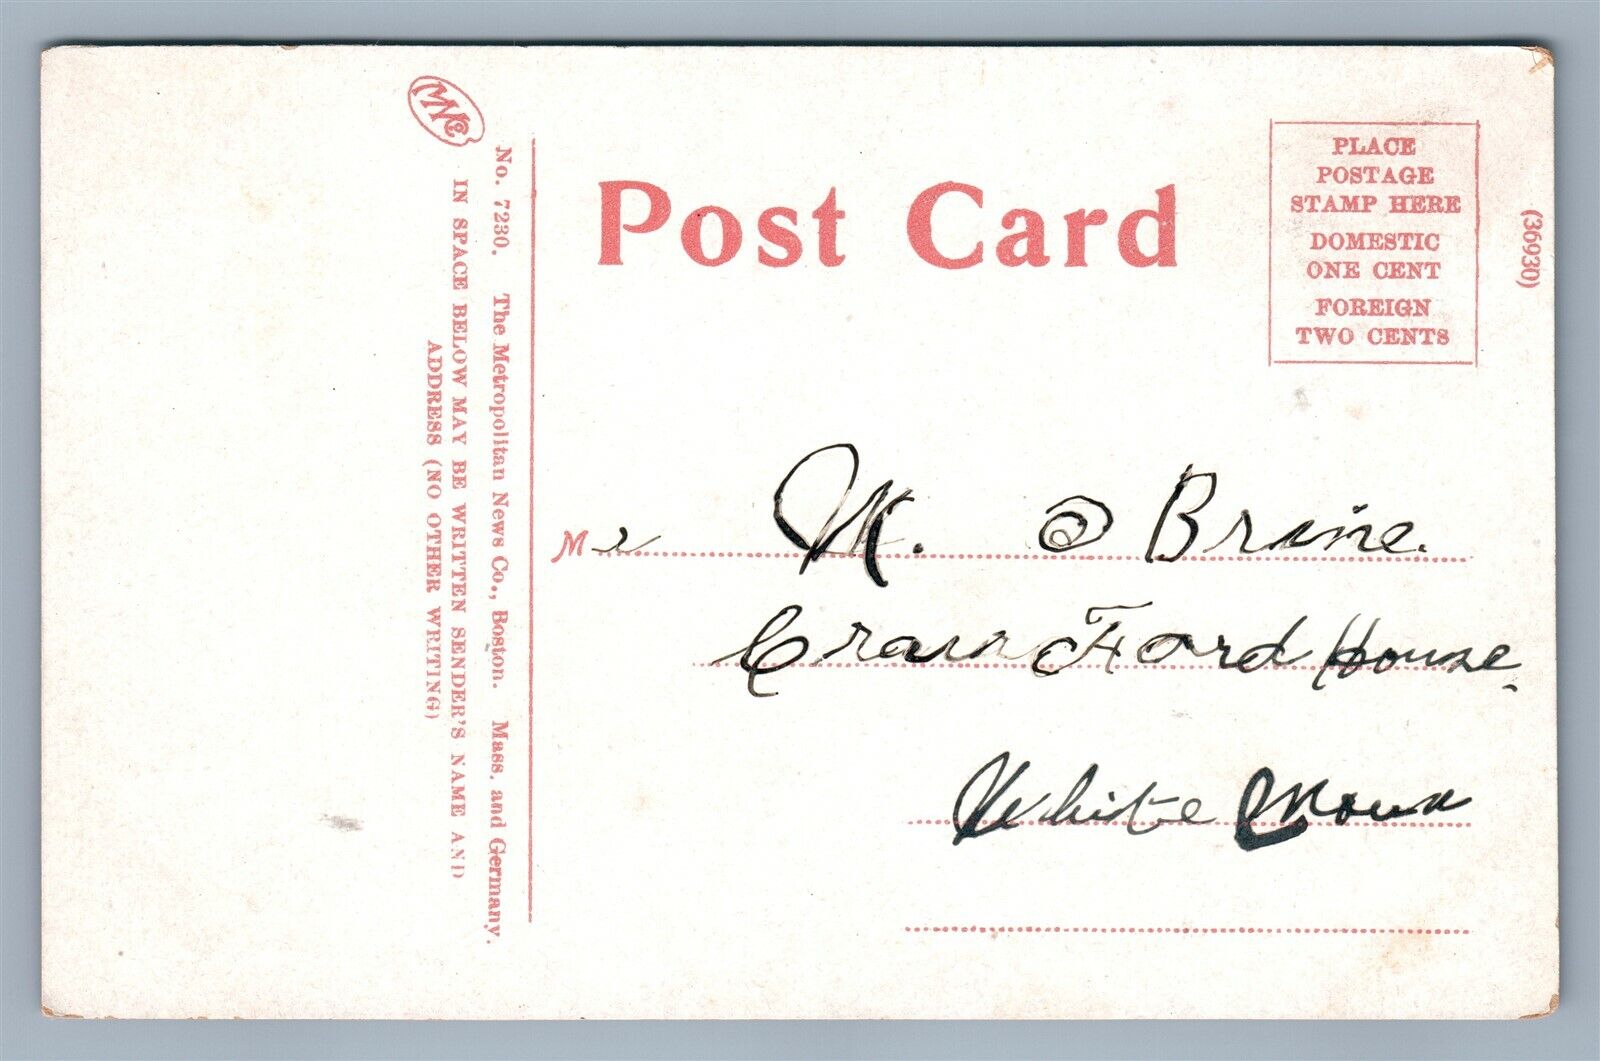 MNCo
No. 7230. The Metropolitan News Co., Boston. Mass. and Germany.
IN SPACE BELOW MAY BE WRITTEN SENDER'S NAME AND
ADDRESS (NO OTHER WRITING)
Post Card
PLACE
POSTAGE
STAMP HERE
DOMESTIC
ONE CENT
FOREIGN
TWO CENTS
(36930)
Mr M. O Brine.
Craw Ford House.
White Moun